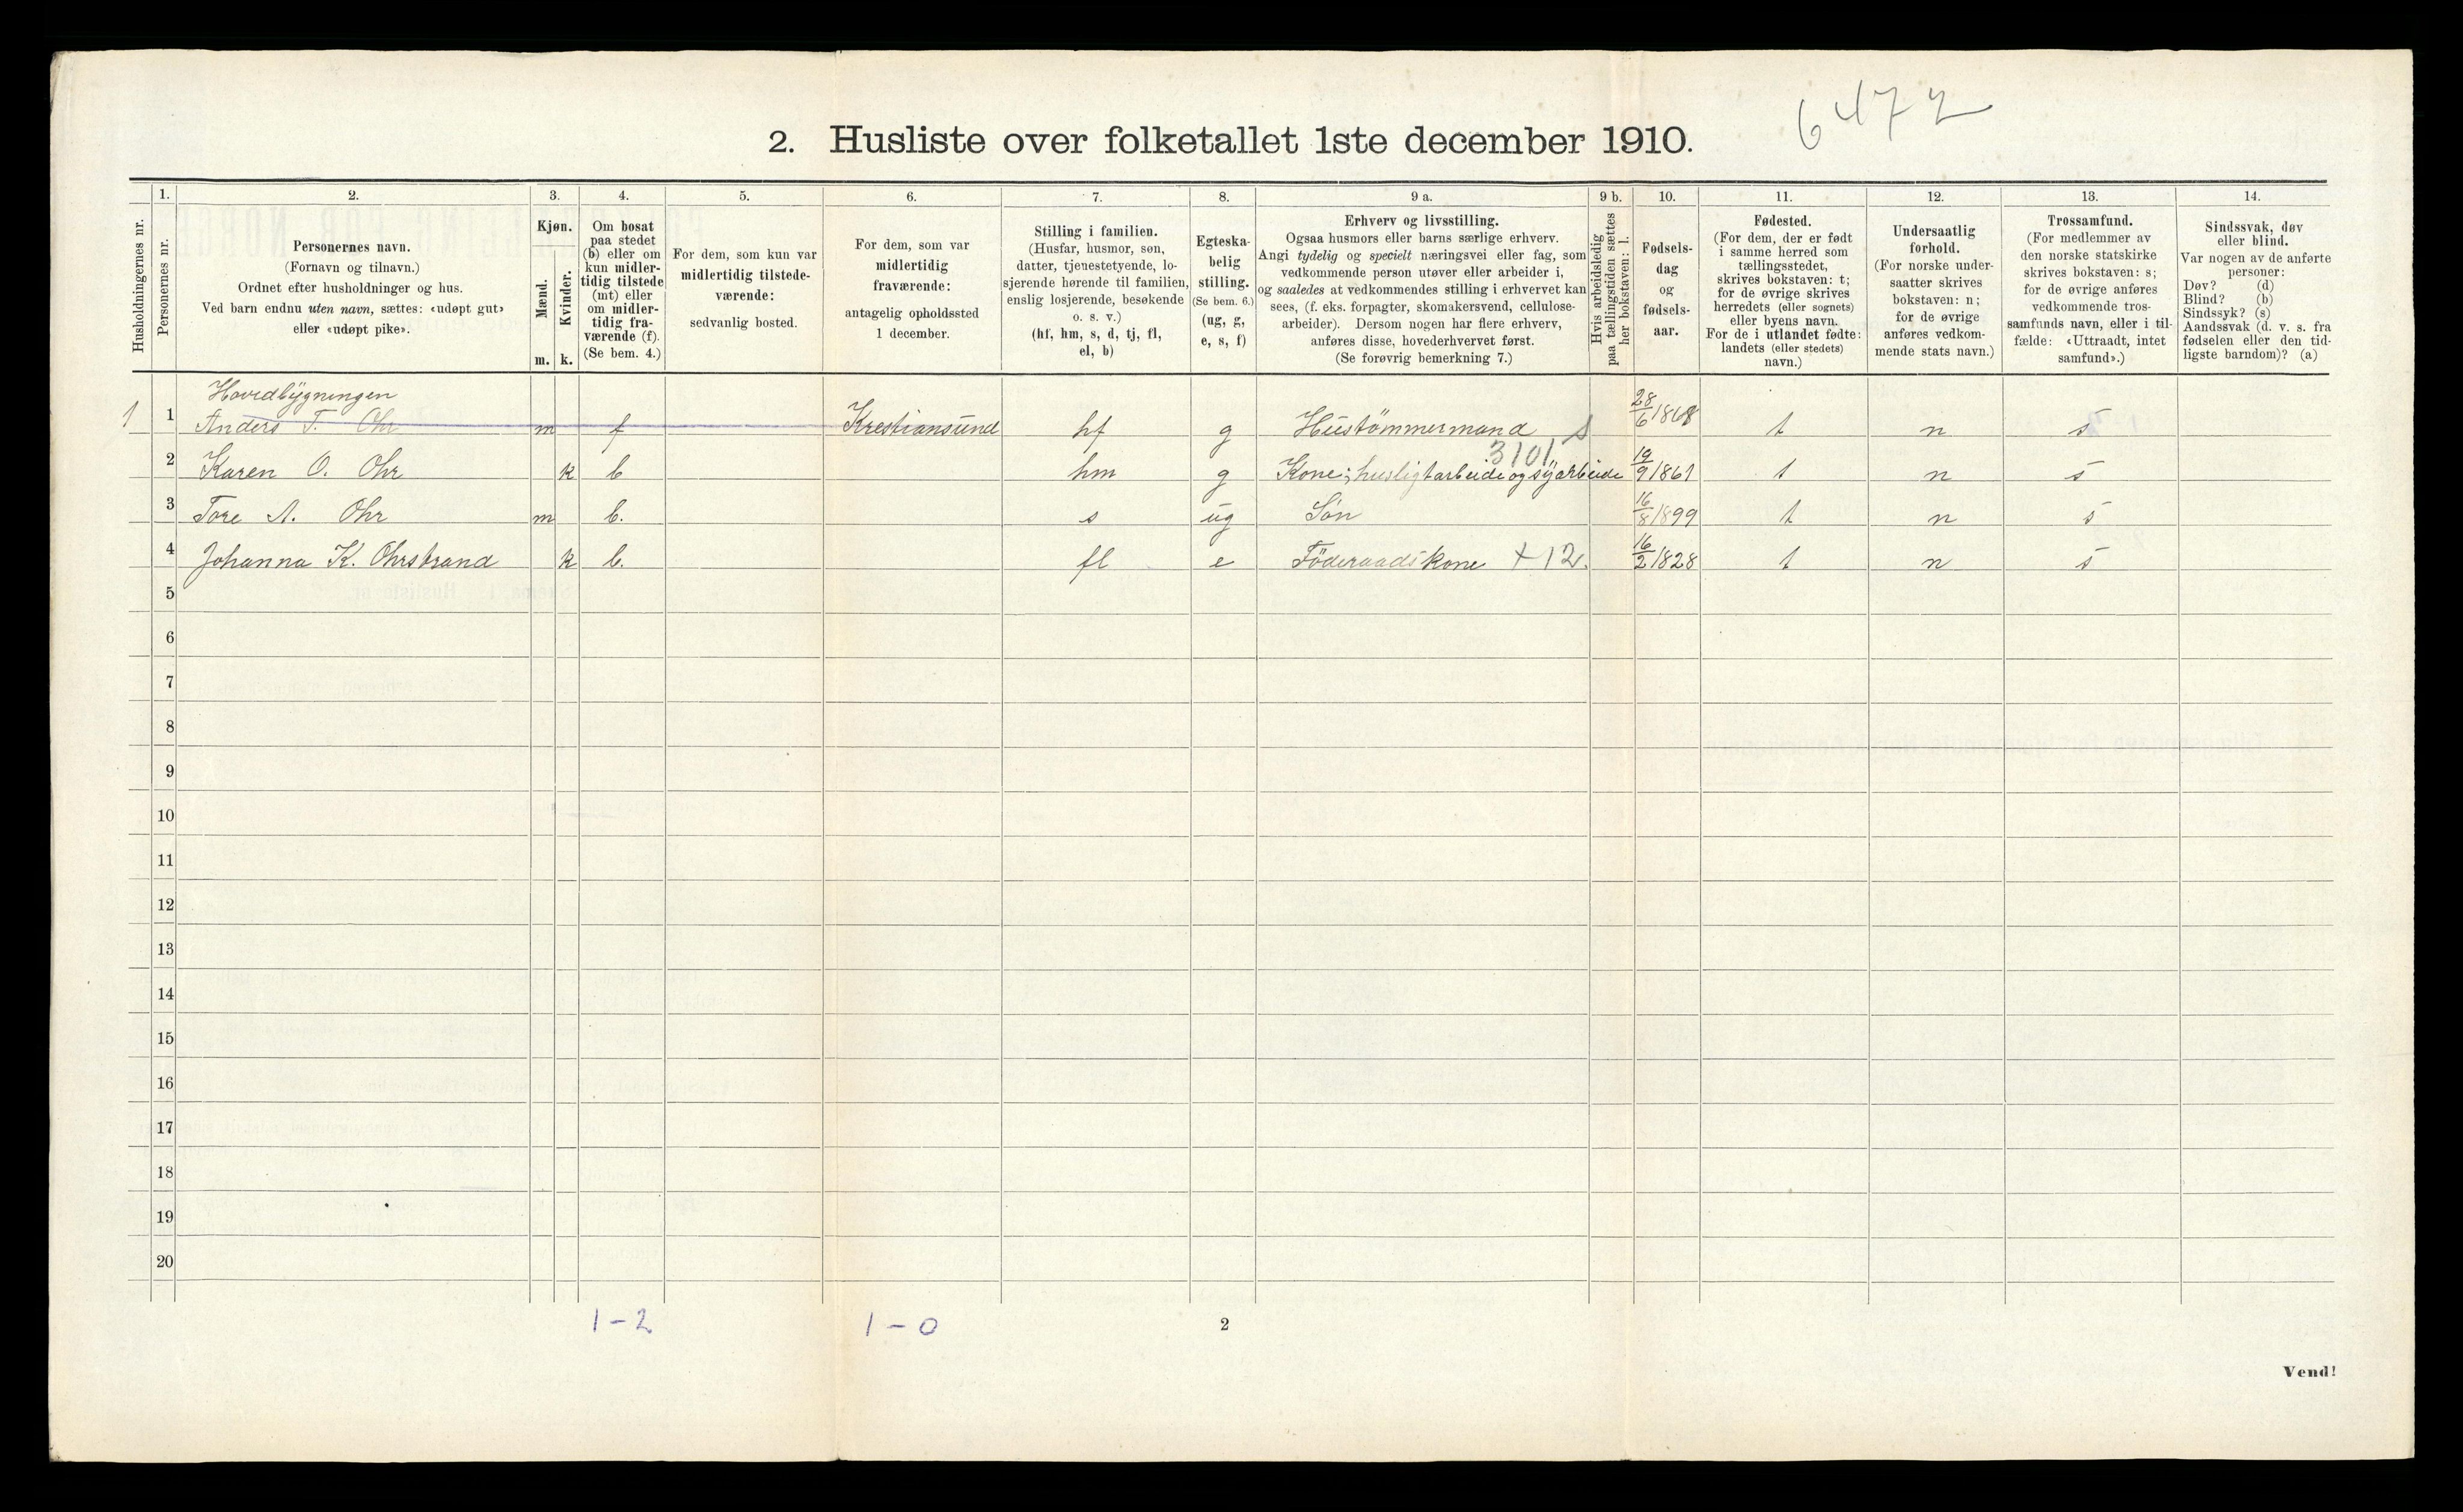 6472
2. Husliste over folketallet 1ste december 1910.
Husholdningernes nr.
1.
Personernes nr.
2.
Personernes navn.
(Fornavn og tilnavn.)
Ordnet efter husholdninger og hus.
Ved barn endnu uten navn, sættes: «udøpt gut»
eller «udøpt pike».
3.
Kjøn.
Mænd.
m.
Kvinder.
k.
4.
Om bosat
paa stedet
(b) eller om
kun midler-
tidig tilstede
(mt) eller
om midler-
tidig fra-
værende (f).
(Se bem. 4.)
5.
For dem, som kun var
midlertidig tilstede-
værende:
sedvanlig bosted.
6.
For dem, som var
midlertidig
fraværende:
antagelig opholdssted
1 december.
7.
Stilling i familien.
(Husfar, husmor, søn,
datter, tjenestetyende, lo-
sjerende hørende til familien,
enslig losjerende, besøkende
o. s. v.)
(hf, hm, s, d, tj, fl,
el, b)
8.
Egteska-
belig
stilling.
(Se bem. 6.)
(ug, g,
e, s, f)
9 a.
Erhverv og livsstilling.
Ogsaa husmors eller barns særlige erhverv.
Angi tydelig og specielt næringsvei eller fag, som
vedkommende person utøver eller arbeider i,
og saaledes at vedkommendes stilling i erhvervet kan
sees, (f. eks. forpagter, skomakersvend, cellulose-
arbeider). Dersom nogen har flere erhverv,
anføres disse, hovederhvervet først.
(Se forøvrig bemerkning 7.)
9 b.
Hvis arbeidsledig
paa tællingstiden sættes
her bokstaven: l.
10.
Fødsels-
dag
og
fødsels-
aar.
11.
Fødested.
(For dem, der er født
i samme herred som
tællingsstedet,
skrives bokstaven: t;
for de øvrige skrives
herredets (eller sognets)
eller byens navn.
For de i utlandet fødte:
landets (eller stedets)
navn.)
12.
Undersaatlig
forhold.
(For norske under-
saatter skrives
bokstaven: n;
for de øvrige
anføres vedkom-
mende stats navn.)
13.
Trossamfund.
(For medlemmer av
den norske statskirke
skrives bokstaven: s;
for de øvrige anføres
vedkommende tros-
samfunds navn, eller i til-
fælde: «Uttraadt, intet
samfund».)
14.
Sindssvak, døv
eller blind.
Var nogen av de anførte
personer:
Døv? (d)
Blind? (b)
Sindssyk? (s)
Aandssvak (d. v. s. fra
fødselen eller den tid-
ligste barndom)? (a)
Hovedbygningen
1 1 Anders T. Ohr m f Krestiansund hf g Hustömmermand s 28/6 1868 t n s
3101
2 Karen O. Ohr k b hm g Kone; husligt arbeide og syarbeide 19/9 1861 t n s
3 Tore A. Ohr m b. s ug Sön 16/8 1899 t n s
4 Johanna K. Ohrstrand k b. fl e Föderaadskone +12. 16/2 1828 t n s
5
6
7
8
9
10
11
12
13
14
15
16
17
18
19
20
1-2 1-0 2
Vend!